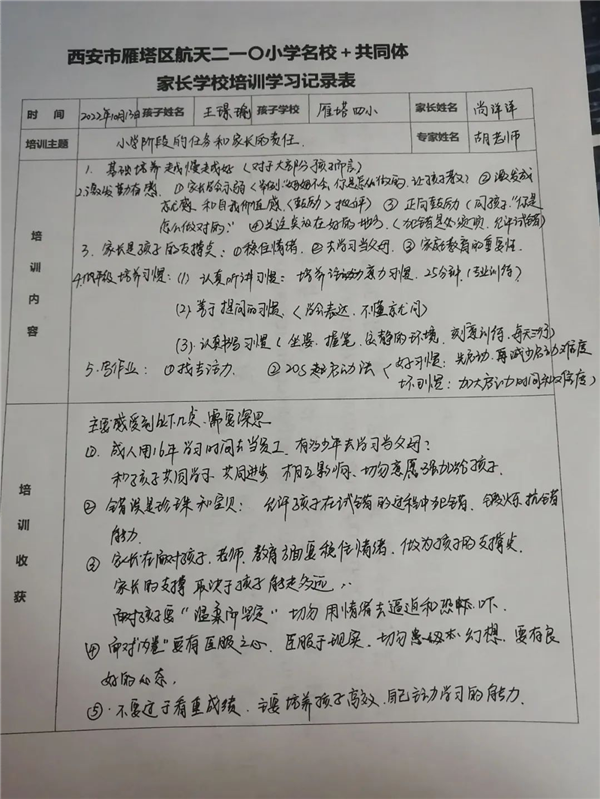 西安市雁塔区航天二一〇小学名校＋共同体
家长学校培训学习记录表
时 间 2022年10月13日 孩子姓名 王璟琬 孩子学校 雁塔四小 家长姓名 尚祥祥
培训主题 小学阶段的任务和家长的责任. 专家姓名 胡老师
培训内容
1. 基础培养 走慢走好（对于大部分孩子而言）
2. ①家长学会示弱 你是怎么做的, 让孩子教 ②激发成
和自我价值感（鼓励＞批评） ③ 正向鼓励（问孩子"你是
怎么做对的" ④关注点放在好的地方.
3. 家长是孩子的支撑点: ①稳住情绪. ②去学习当父母. ③家庭教育的重要性.
培养习惯: (1) 认真听讲习惯: 培养 注意力习惯. 25分钟.
(2) 善于提问的习惯. 不懂就问)
(3) 认真书写习惯（坐姿. 握笔. 安静的环境.
5. 写作业: ①找专注力. ② 20S起启动法（好习惯: 先启动. 再减少启动难度
坏习惯: 加大启动时间和难度）
培训收获
主要感受到以下几点, 需要深思
①. 成人用16年学习时间去当员工, 有多少年去学习当父母?
和孩子共同学习. 共同进步. 相互影响. 切勿意愿强加给孩子.
② 错误是珍珠和宝贝: 允许孩子在试错的过程中犯错. 锻炼抗错
能力.
③ 家长在面对孩子, 老师, 教育方面要稳住情绪. 做为孩子的支撑点.
家长的支撑 取决于孩子能走多远,
面对孩子要"温柔而坚定" 切勿用情绪去逼迫和恐吓.
④ 面对"内卷"要有臣服之心. 臣服于现实. 切勿 幻想. 要有良
好的心态.
⑤. 不要过于看重成绩. 主要培养孩子高效. 自己主动学习的能力.